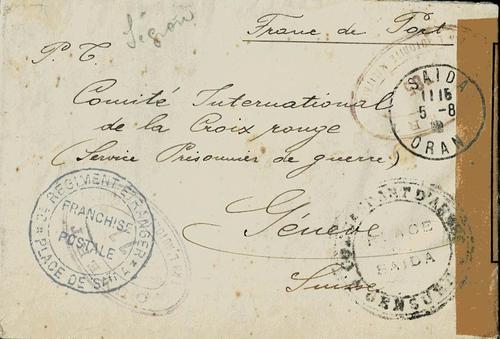 Légion
Franc de Port
P. T.
Comité International
de la Croix rouge
(Service Prisonnier de guerre)
Génève
Suisse
SAIDA
11 15
5 - 8
ORAN
REGIMENT ETRANGER
FRANCHISE
POSTALE
PLACE DE SAIDA
PLACE
SAIDA